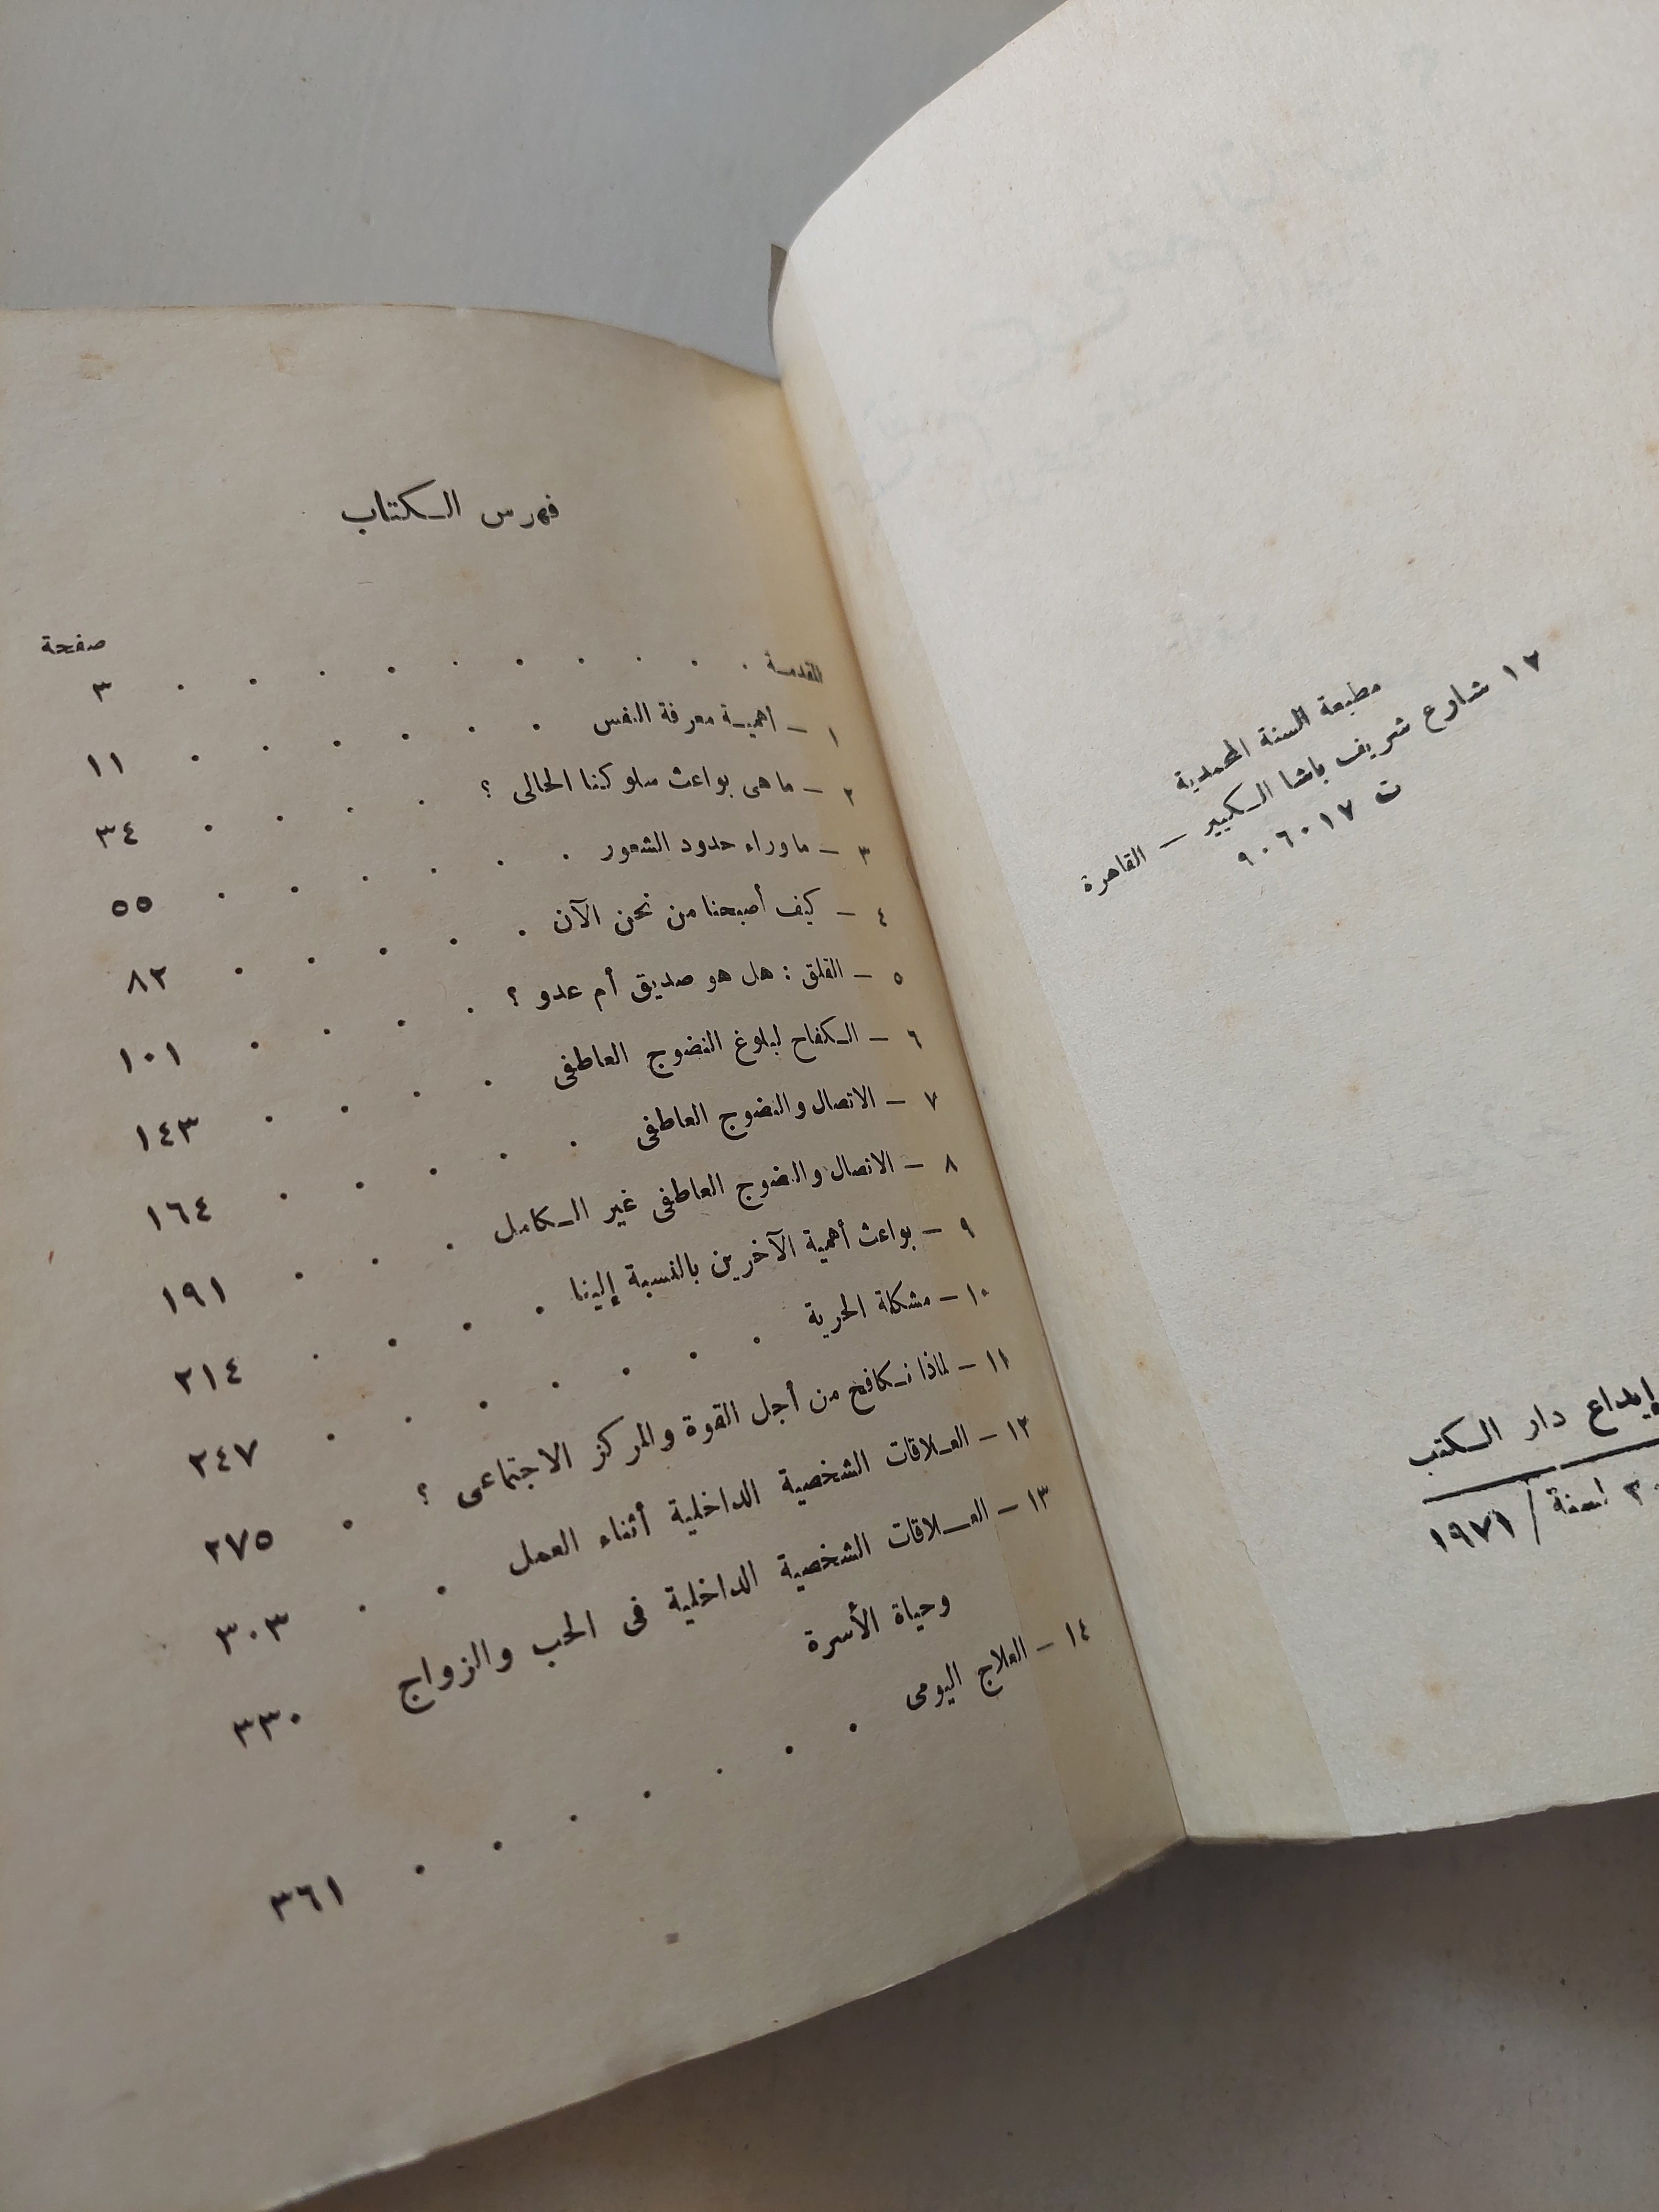 مطبعة السنة المحمدية
١٧ شارع شريف باشا الكبير – القاهرة
ت ٩٠٦٠١٧
إيداع دار الكتب
لسنة / ١٩٧١
فهرس الكتاب
صفحة
المقدمة . . . . . . . . . . ٣
١ – أهمية معرفة النفس . . . . . . ١١
٢ – ما هى بواعث سلوكنا الحالى ؟ . . . . ٣٤
٣ – ماوراء حدود الشعور . . . . . . ٥٥
٤ – كيف أصبحنا من نحن الآن . . . . . ٨٢
٥ – القلق : هل هو صديق أم عدو ؟ . . . . ١٠١
٦ – الكفاح لبلوغ النضوج العاطفى . . . . ١٤٣
٧ – الاتصال والنضوج العاطفى . . . . . ١٦٤
٨ – الاتصال والنضوج العاطفى غير الكامل . . . ١٩١
٩ – بواعث أهمية الآخرين بالنسبة إلينا . . . . ٢١٤
١٠ – مشكلة الحرية . . . . . . . ٢٤٧
١١ – لماذا نكافح من أجل القوة والمركز الاجتماعى ؟ . ٢٧٥
١٢ – العلاقات الشخصية الداخلية أثناء العمل . . ٣٠٣
١٣ – العلاقات الشخصية الداخلية فى الحب والزواج
وحياة الأسرة ٣٣٠
١٤ – العلاج اليومى . . . . . . . ٣٦١